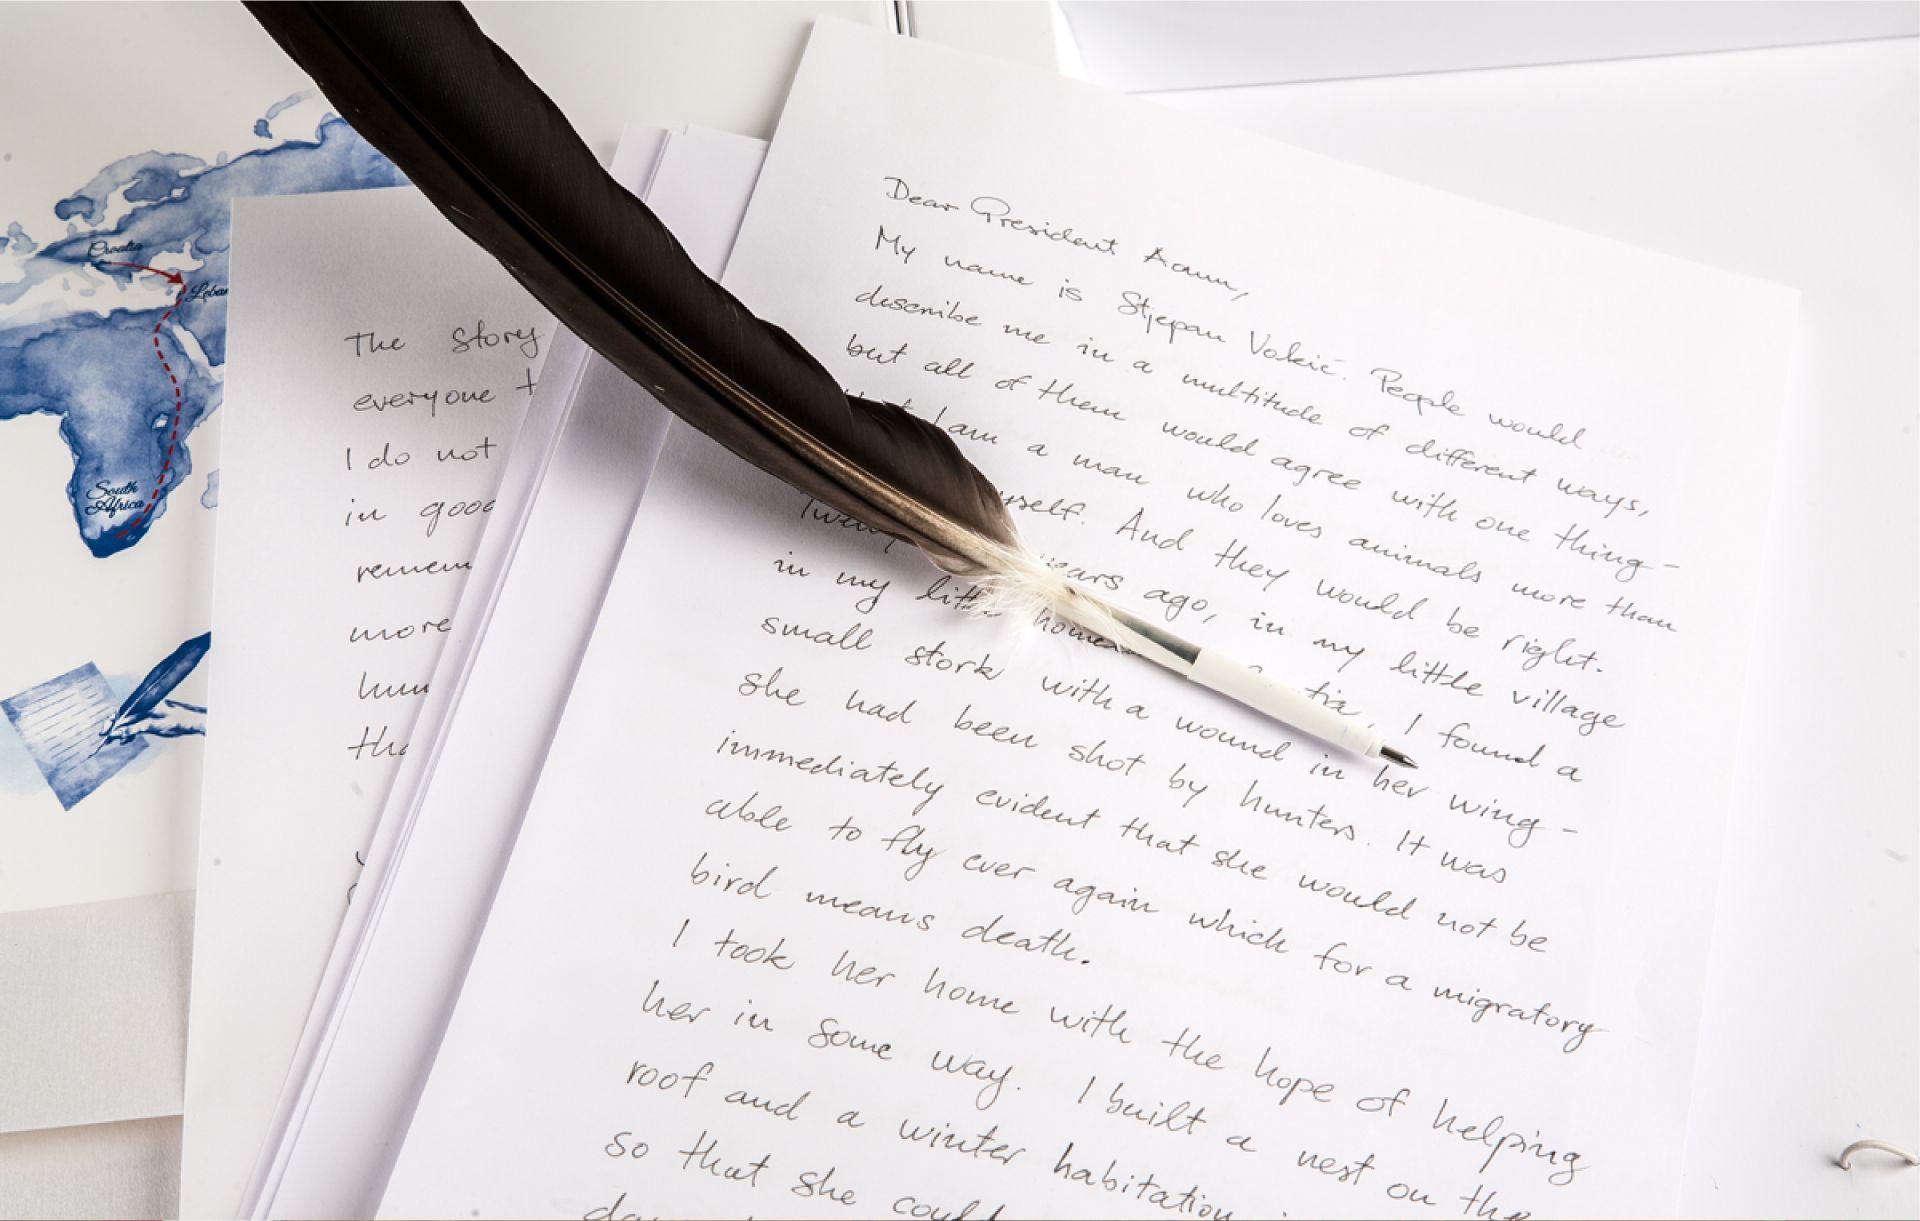 Croatia
South
Africa
The story
everyone
I do not
in
more
Dear President Aoun,
My name is Stjepan Vokić. People would
describe me in a multitude of different ways,
but all of them would agree with one thing -
I am a man who loves animals more than
And they would be right.
years ago, in my little village
in my little home I found a
small stork with a wound in her wing -
she had been shot by hunters. It was
immediately evident that she would not be
able to fly ever again which for a migratory
bird means death.
I took her home with the hope of helping
her in some way. I built a nest on the
roof and a winter habitation
so that she could